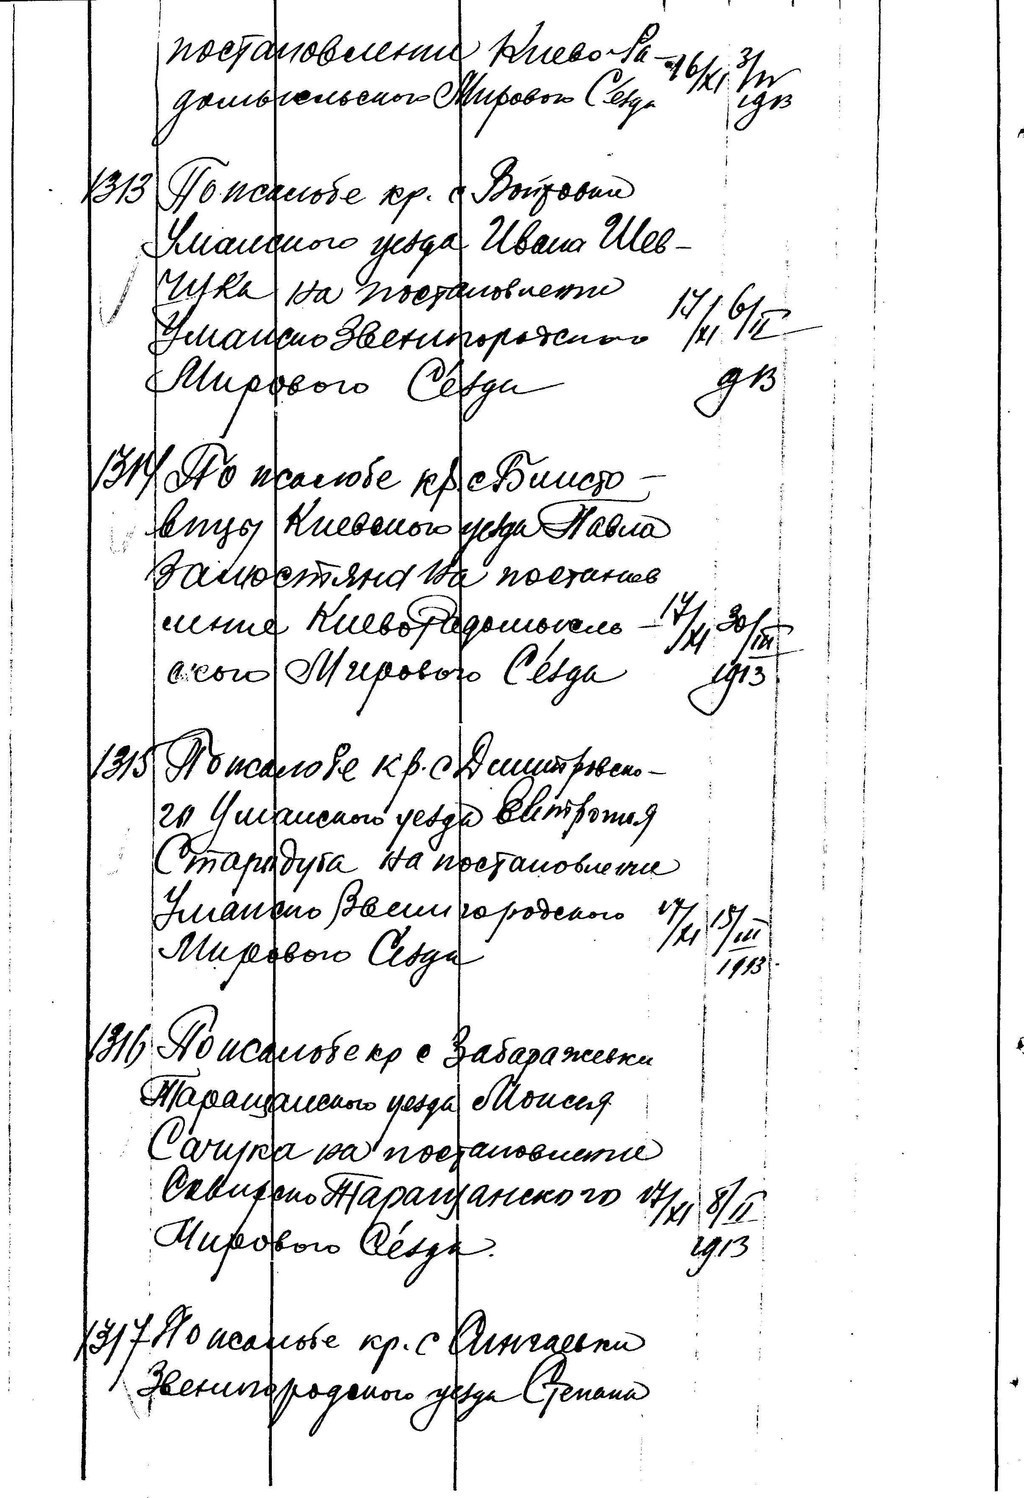 постановление Киево-Ра-
домысльского Мирового Съезда 16/XI 3/IV 1913
1313 По жалобе кр. с Войтовки
Уманского уезда Ивана Шев-
чука на постановление
Уманско Звенигородского 17/XI 6/II
Мирового Съезда 913
1314 По жалобе кр с
Киевского уезда Павла
на постанов
ление Киево Радомысль- 17/XI 30/III
ского Мирового Съезда 1913
1315 По жалобе кр. с Дмитровско-
го Уманского уезда Митрофия
Стародуба на постановление
Уманско Звенигородского 17/XI 15/III
Мирового Съезда 1913
1316 По жалобе кр с Забаражевки
Таращанского уезда Моисея
Сачука на постановление
Сквирско Таращанского 17/XI 8/II
Мирового Съезда. 1913
1317 По жалобе кр. с
Звенигородского уезда Степана